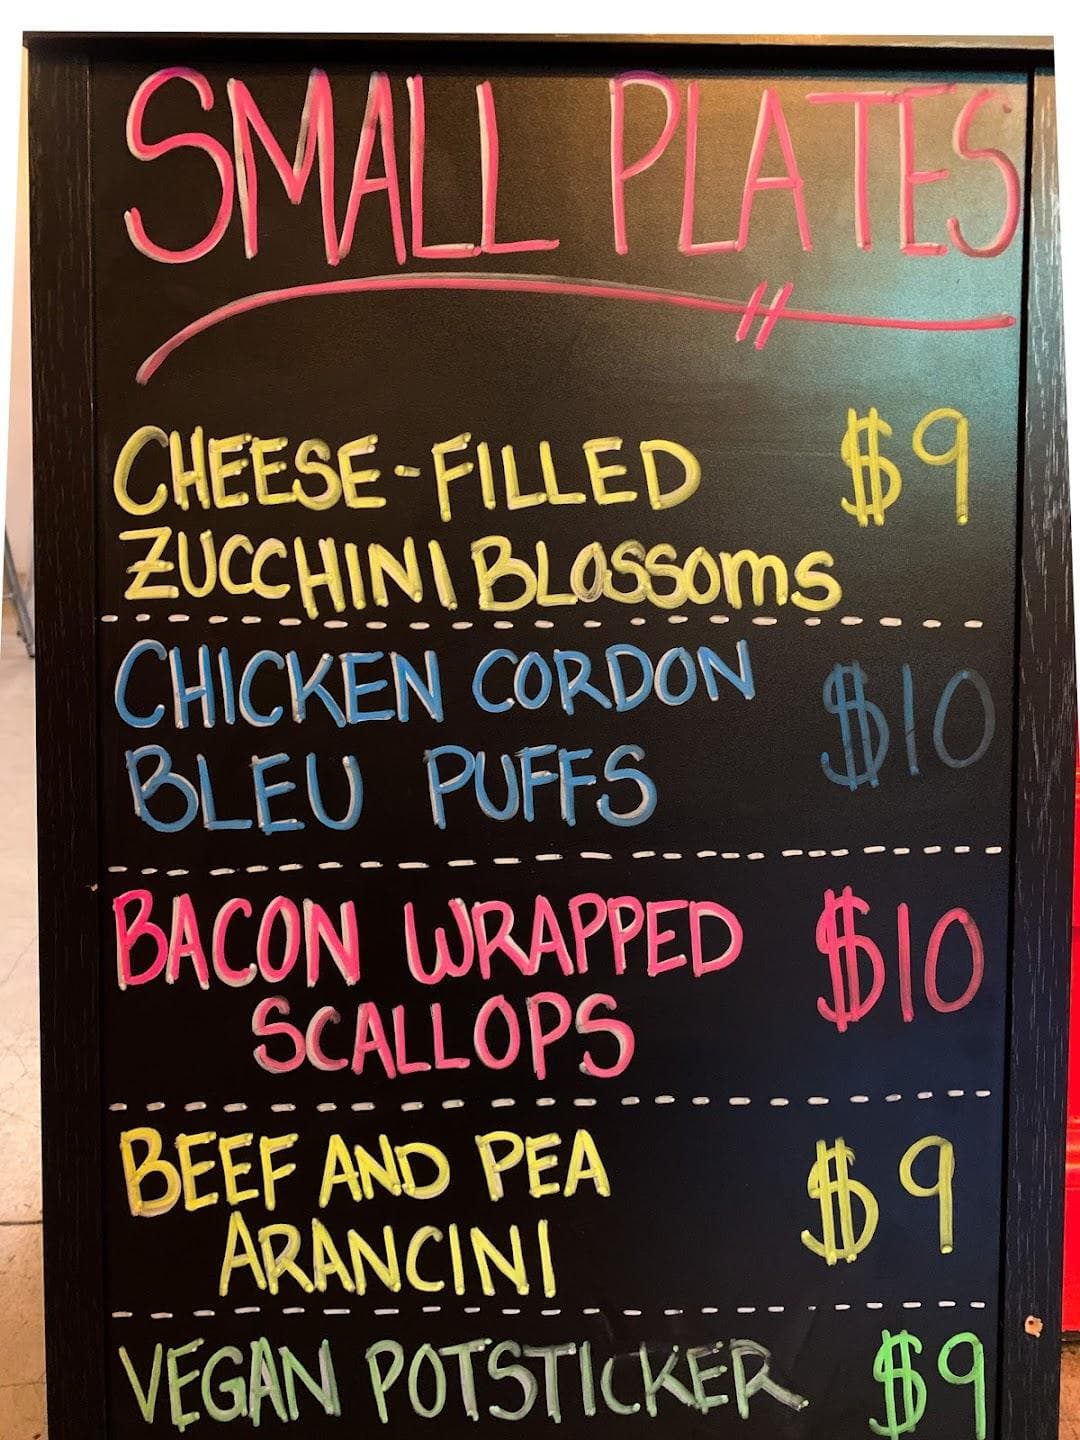 SMALL PLATES
CHEESE-FILLED $9
ZUCCHINI BLOSSOMS
CHICKEN CORDON $10
BLEU PUFFS
BACON WRAPPED $10
SCALLOPS
BEEF AND PEA $9
ARANCINI
VEGAN POTSTICKER $9